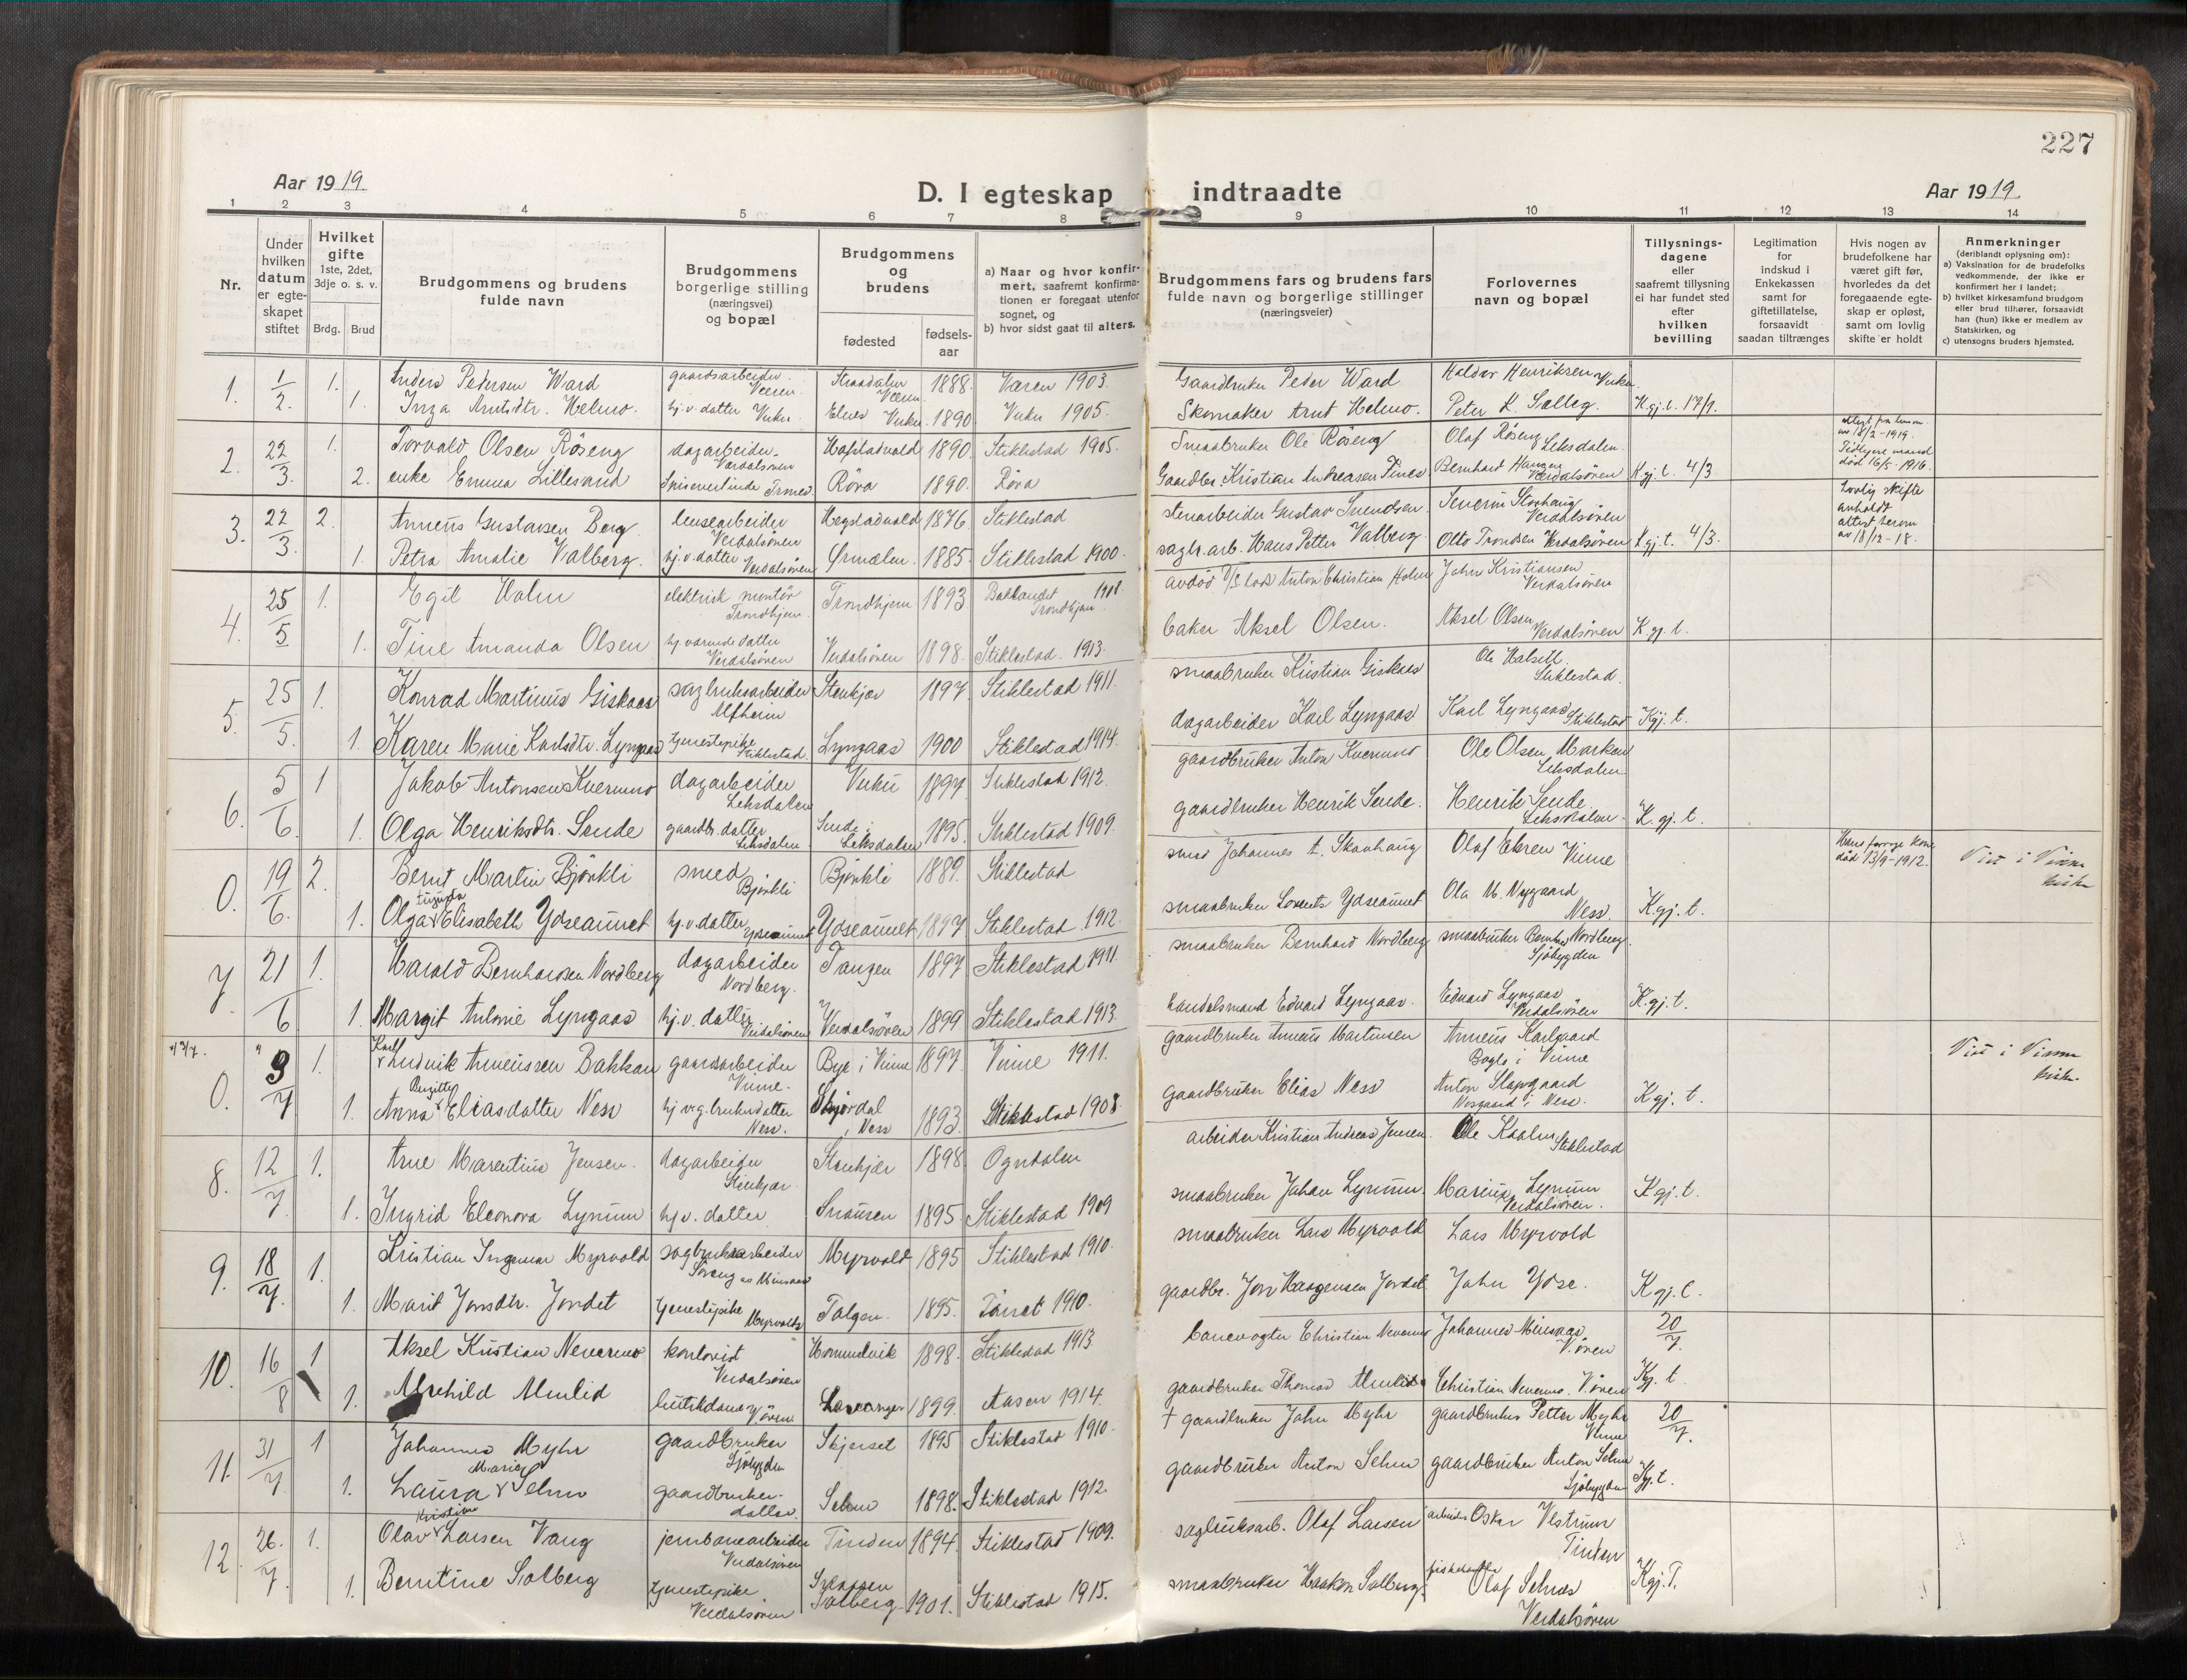 227
Aar 1919.
D. I egteskap indtraadte
Aar 1919.
1 2 3 4 5 6 7 8 9 10 11 12 13 14
Nr.
Under hvilken datum er egteskapet stiftet
Hvilket gifte
1ste, 2det, 3dje o. s. v.
Brdg. Brud
Brudgommens og brudens fulde navn
Brudgommens borgerlige stilling (næringsvei) og bopæl
Brudgommens og brudens
fødested
fødsels-aar
a) Naar og hvor konfirmert, saafremt konfirmationen er foregaat utenfor sognet, og
b) hvor sidst gaat til alters.
Brudgommens fars og brudens fars fulde navn og borgerlige stillinger (næringsveier)
Forlovernes navn og bopæl
Tillysningsdagene eller saafremt tillysning ei har fundet sted efter hvilken bevilling
Legitimation for indskud i Enkekassen samt for giftetillatelse, forsaavidt saadan tiltrænges
Hvis nogen av brudefolkene har været gift før, hvorledes da det foregaaende egteskap er opløst, samt om lovlig skifte er holdt
Anmerkninger
(deriblandt oplysning om):
a) Vaksination for de brudefolks vedkommende, der ikke er konfirmert her i landet;
b) hvilket kirkesamfund brudgom eller brud tilhører, forsaavidt han (hun) ikke er medlem av Statskirken, og
c) utensogns bruders hjemsted.
1. 1/2. 1. Anders Pedersen Ward gaardsarbeider Væren. 1888. Væren 1903. Gaardbruker Peder Ward Haldor Henriksen Vuku.
1. Inga Arntsdtr. Helmo. hj.v. datter Vuku Elnes Vuku 1890 Vuku 1905. Skomaker Arnt Helmo. Peter K. Sælleg. K.gj.t. 17/1.
2. 22/3. 1. Torvald Olsen Röseng dagarbeider Verdalsören Hofstadvald 1890. Stiklestad 1905. Smaabruker Ole Röseng Olaf Röseng Leksdalen.
2. enke Emma Lillesand Spisevertinde Røra 1890. Røra Gaardbr. Kristian Andreasen Tines Bernhard Hansen Verdalsören K.gj.t. 4/3 Tidligere mand död 16/5 - 1916.
3. 22/3. 2. Arneus Gustavsen Berg lensearbeider Verdalsören Hegstadvald 1876. Stiklestad stenarbeider Gustav Svendsen. Severin Storhaug Verdalsören Lovlig skifte avholdt attest herom av 18/12 - 18.
1. Petra Amalie Valberg. hj.v. datter Verdalsören Ørmelen. 1885. Stiklestad 1900. sagbr.arb. Hans Petter Valberg Otto Trondsen Verdalsören K.gj.t. 4/3.
4. 25/5 1. Egil Holm elektrisk montör Trondhjem Trondhjem 1893 Baklandet Trondhjem 1908. avdöd Anton Christian Holm John Kristiansen Verdalsören
1. Tine Amanda Olsen hj.værende datter Verdalsören Verdalsören 1898. Stiklestad. 1913. baker Aksel Olsen. Aksel Olsen Verdalsören K.gj.t.
5. 25/5. 1. Konrad Martinus Giskaas sagbruksarbeider Alfheim Stenkjær 1897. Stiklestad 1911. smaabruker Kristian Giskaas Ole Halseth Stiklestad.
1. Karen Marie Karlsdtr. Lyngaas tjenestepike Stiklestad Lyngaas 1900 Stiklestad 1914. dagarbeider Karl Lyngaas Karl Lyngaas Stiklestad K.gj.t.
6. 5/6. 1 Jakob Antonsen Kvernmo dagarbeider Leksdalen Vuku 1897 Stiklestad 1912. gaardbruker Anton Kvernmo Ole Olsen Marken Leksdalen
1. Olga Henriksdtr. Sende gaardbr.datter Leksdalen Sende i Leksdalen 1895. Stiklestad 1909. gaardbruker Henrik Sende. Henrik Sende. Leksdalen. K.gj.t.
0. 19/6. 2. Bernt Martin Bjönkli smed Bjönkli Bjönkli 1889. Stiklestad smed Johannes A. Skavhaug Olaf Ekren Vinne Hans forrige kone död 13/9-1912. Viet i Vinne kirke
1. Olga Elisabeth Ydseaunet hj.v. datter Ydseaunet Ydseaunet 1897 Stiklestad 1912. smaabruker Lorents Ydseaunet Ola M. Nygaard Ness. K.gj.t.
7. 21/6 1. Harald Bernhardsen Nordberg dagarbeider Nordberg. Tangen 1897 Stiklestad 1911. smaabruker Bernhard Nordberg smaabruker Bernhard Nordberg. Sjöbygden
1. Margit Antonie Lyngaas hj.v. datter Verdalsören Verdalsören 1899 Stiklestad 1913. handelsmand Edvard Lyngaas. Edvard Lyngaas Verdalsören K.gj.t.
0. 3/7 1. Karl Ludvik Arneussen Bakkan gaardsarbeider Vinne. Bye i Vinne 1897. Vinne 1911. gaardbruker Arneus Martinsen Arneus Karlgaard i Vinne Viet i Vinne kirke.
1. Anna Birgitte Eliasdatter Ness Ness. Skjördal i Ness 1893. Stiklestad 1908. gaardbruker Elias Ness Anton Slapgaard i Ness. K.gj.t.
8. 12/7 1. Arne Marentius Jensen. dagarbeider Stenkjær. Stenkjær 1898 Ogndalen arbeider Kristian Andreas Jensen. Ole Kaalen Stiklestad
1. Ingrid Eleonora Lynum hj.v. datter Snausen 1895 Stiklestad 1909 smaabruker Johan Lynum. Marius Lynum Verdalsören. K.gj.t.
9. 18/7. 1. Kristian Ingemar Myrvold sagbruksarbeider Myrvold 1895 Stiklestad 1910. smaabruker Lars Myrvold Lars Myrvold
1. Marit Jonsdtr. Jordet tjenestepike Myrvold Tolgen. 1895. 1910. gaardbr. Jon Haagensen Jordet John Ydse. K.gj.t.
10. 16/8 1 Aksel Kristian Nevermo kontorist Verdalsören Hommelvik 1898. Stiklestad 1913. banevogter Christian Nevermo Johannes Minsaas V.ören 20/7.
1. Alvhild Almlid butikdame V.ören Levanger 1899. Aasen 1914. gaardbruker Thomas Almlid Christian Nevermo. V.ören K.gj.t.
11. 31/7 1 Johannes Myhr gaardbruker Sjöbygden Skjerset 1895 Stiklestad 1910. † gaardbruker John Myhr gaardbruker Petter Myhr Vinne 20/7.
1. Laura Marie Selmo gaardbruker-datter. Selmo 1898. Stiklestad 1912. gaardbruker Anton Selmo gaardbruker Anton Selmo Sjöbygden K.gj.t.
12. 26./7. 1. Olav Kristian Larsen Vang jernbanearbeider Verdalsören Tinden 1894. Stiklestad 1909. sagbruksarb. Olaf Larsen arbeider Oskar Vestrum Tinden
1. Berntine Solberg tjenestepike Verdalsören Solberg. 1901. Stiklestad 1915. smaabruker Haakon Solberg. Olaf Selnes Verdalsören K.gj.T.